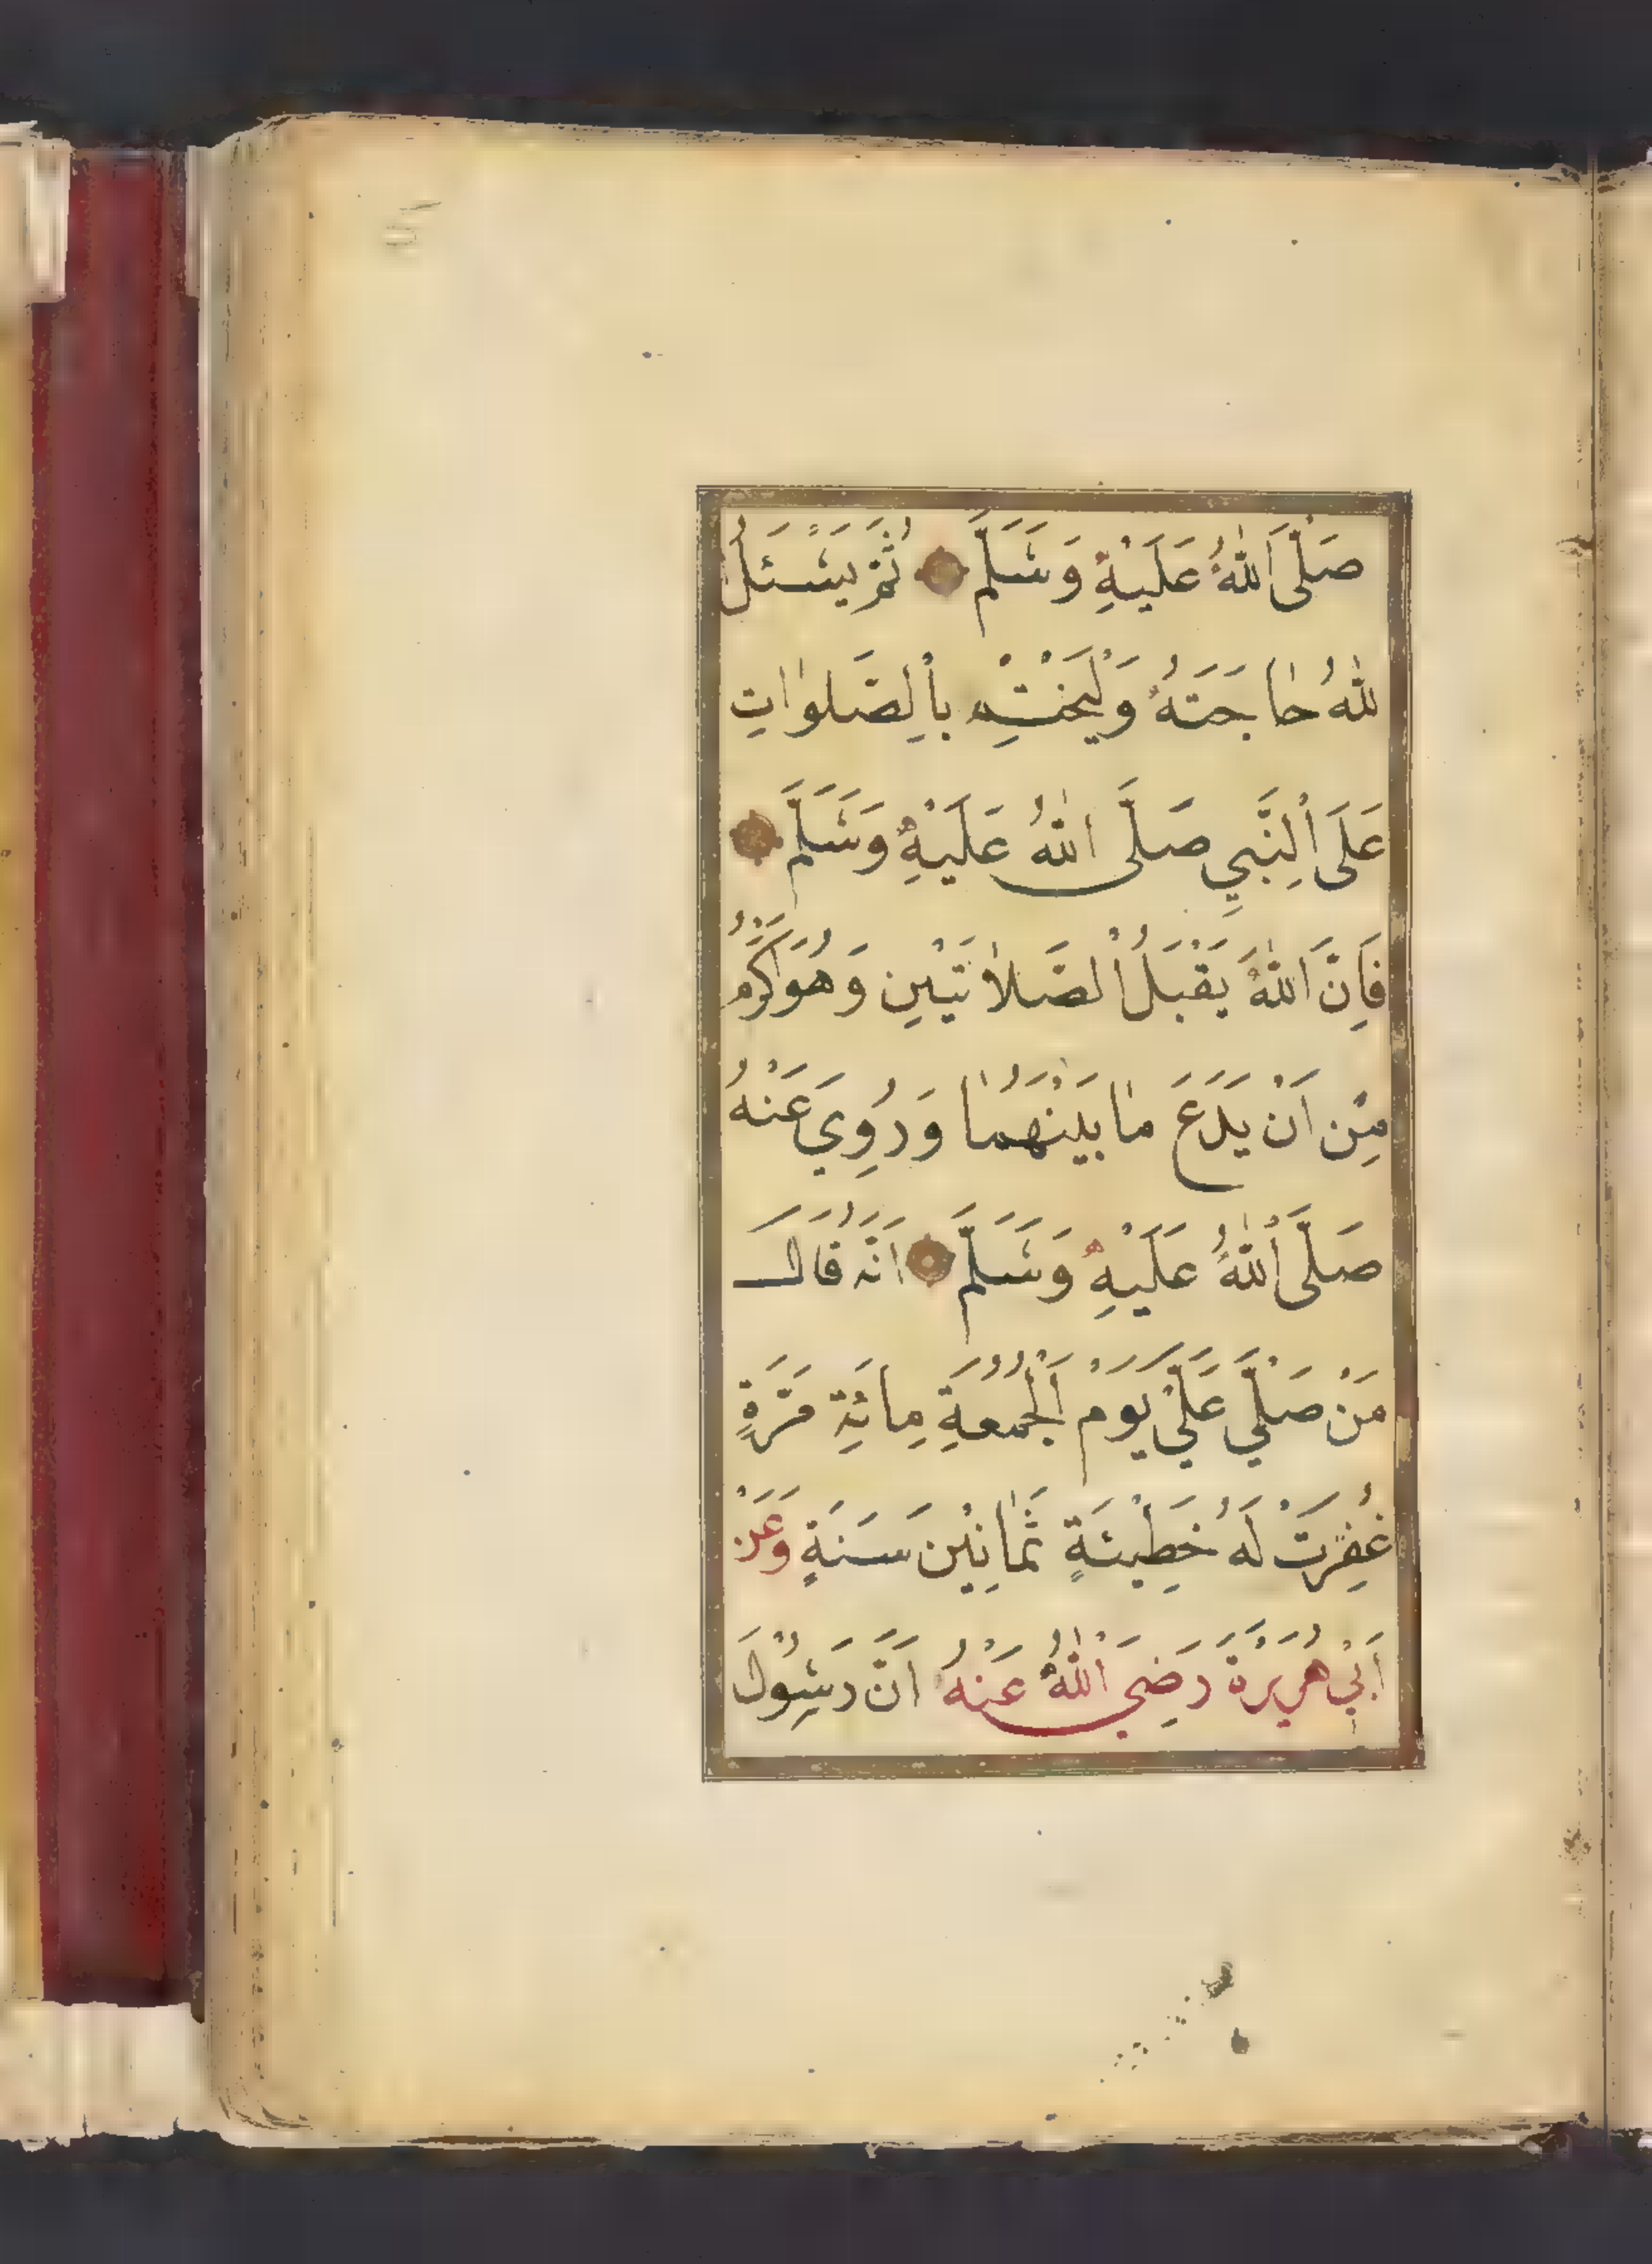 صَلَّى اللهُ عَلَيْهِ وَسَلَّمَ ثُمَّ يَسْئَلُ
للهُ حَاجَتَهُ وَلْيَخْتِمْ بِالصَّلَوَاتِ
عَلَى النَّبِيِ صَلَّى اللهُ عَلَيْهِ وَسَلَّمَ
فَاِنَّ اللهَ يَقْبَلُ الصَّلَاتَيْنِ وَهُوَ اَكْرَمُ
مِنْ اَنْ يَدَعَ مَا بَيْنَهُمَا وَرُوِيَ عَنْهُ
صَلَّى اللهُ عَلَيْهِ وَسَلَّمَ اَنَّهُ قَالَ
مَنْ صَلَّي عَلَيَّ يَوْمَ الْجُمُعَةِ مِائَةِ مَرَّةٍ
غُفِرَتْ لَهُ خَطِيْئَةٍ ثَمَانِيْنَ سَنَةٍ وَعَنْ
اَبِيْ هُرَيْرَةَ رَضِيَ اللهُ عَنْهُ اَنَّ رَسُوْلَ